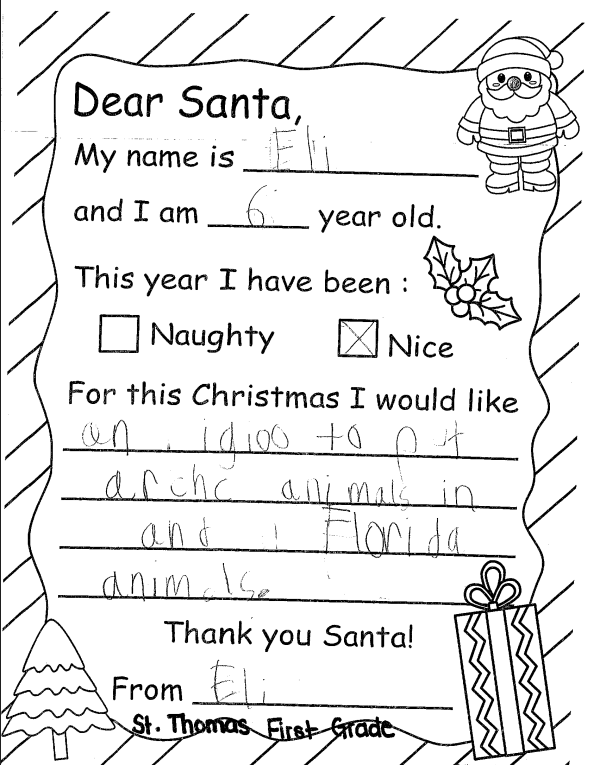 Dear Santa,
My name is Eli
and I am 6 year old.
This year I have been :
Naughty Nice
For this Christmas I would like
an igloo to put
archc animals in
and Florida
animals.
Thank you Santa!
From Eli
St. Thomas First Grade